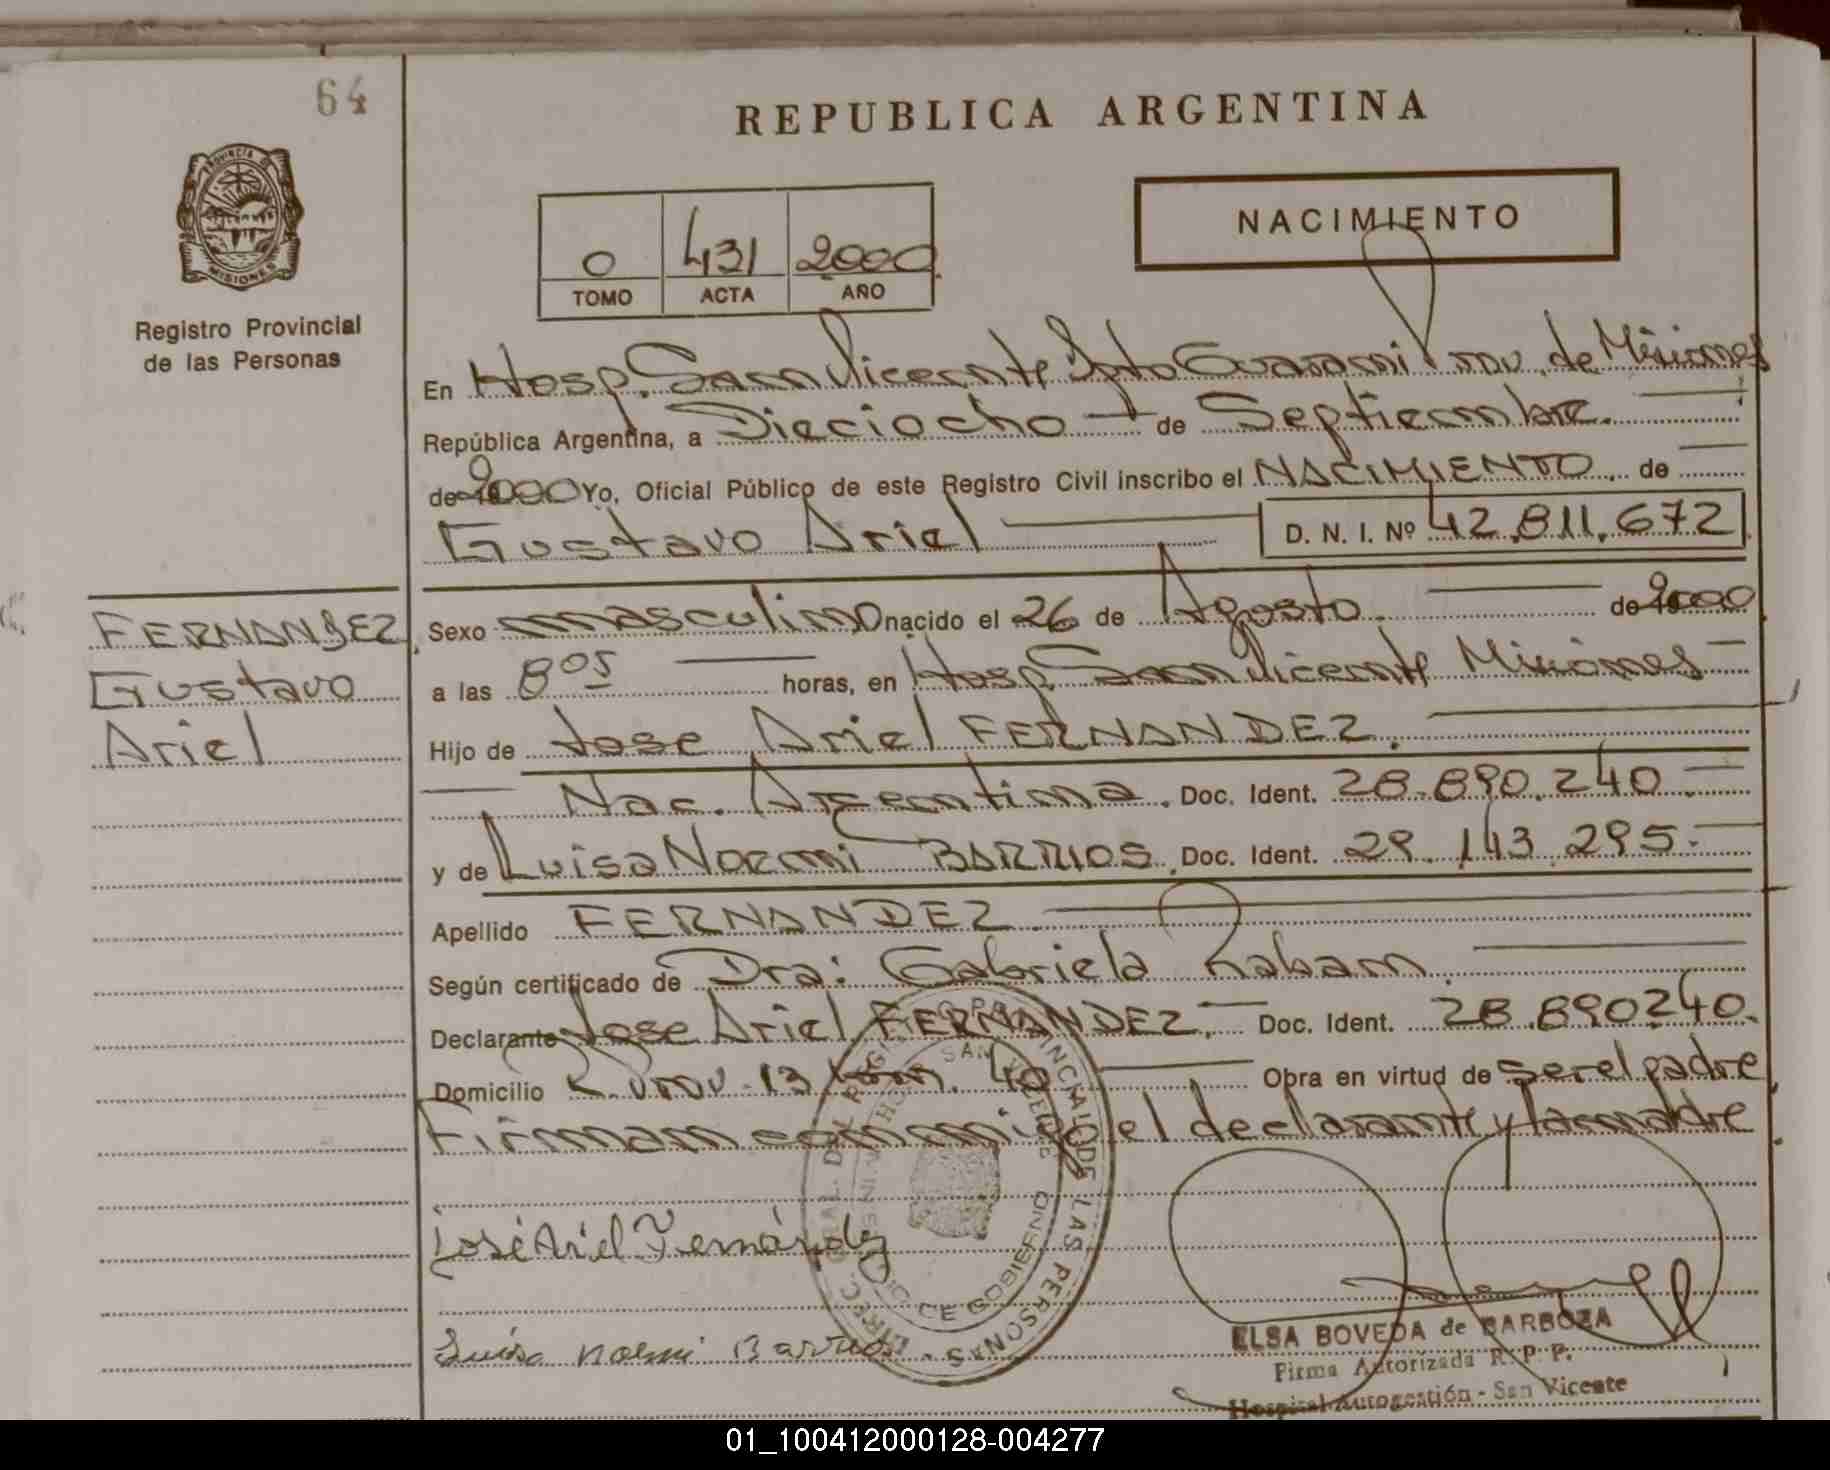 64
REPUBLICA ARGENTINA
PROVINCIA DE
MISIONES
Registro Provincial
de las Personas
0 431 2000
TOMO ACTA AÑO
NACIMIENTO
En Hosp. San Vicente Dpto Guarani Prov. de Misiones
República Argentina, a Dieciocho de Septiembre
de 2000 Yo, Oficial Público de este Registro Civil inscribo el NACIMIENTO de
Gustavo Ariel D. N. I. Nº 42.811.672
FERNANDEZ
Gustavo
Ariel
Sexo masculino nacido el 26 de Agosto de 2000
a las 8 05 horas, en Hosp San Vicente Misiones
Hijo de Jose Ariel FERNANDEZ
Nac. Argentina. Doc. Ident. 28.890.240
y de Luisa Noemi BARRIOS. Doc. Ident. 29.143.295.-
Apellido FERNANDEZ
Según certificado de Dra: Gabriela
Declarante Jose Ariel FERNANDEZ. Doc. Ident. 28.890240.
Domicilio R. Prov. 13 Km. 40 Obra en virtud de ser el padre
Firman conmigo el declarante y la madre
José Ariel Fernández
Luisa noemi Barrios
DIREC. GRAL. DEL REGISTRO PROVINCIAL DE LAS PERSONAS
SAN VICENTE
DE GOBIERNO
ELSA BOVEDA de BARBOZA
Firma Autorizada R. P. P.
Hospital Autogestión - San Vicente
01_100412000128-004277